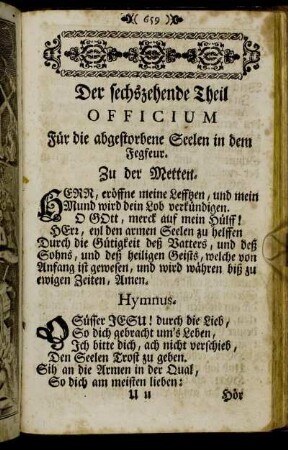 (659)
Der sechszehende Theil
OFFICIUM
Für die abgestorbene Seelen in dem
Fegfeur.
Zu der Metten.
HERR, eröffne meine Lefftzen, und mein
Mund wird dein Lob verkündigen.
O GOtt, merck auf mein Hülff!
HErr, eyl den armen Seelen zu helffen
Durch die Gütigkeit deß Vatters, und deß
Sohns, und deß heiligen Geists, welche von
Anfang ist gewesen, und wird währen biß zu
ewigen Zeiten, Amen.
Hymnus.
O Süsser JESU! durch die Lieb,
So dich gebracht um's Leben,
Ich bitte dich, ach nicht verschieb,
Den Seelen Trost zu geben.
Sih an die Armen in der Qual,
So dich am meisten lieben:
U u Hör